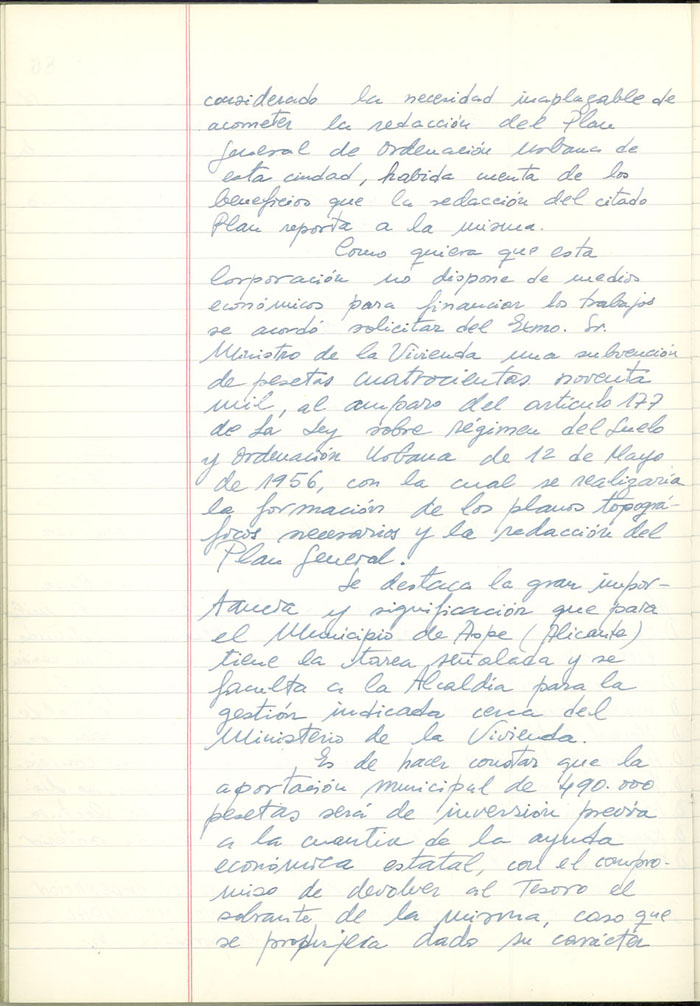 considerado la necesidad inaplazable de
acometer la redacción del Plan
General de Ordenación Urbana de
esta ciudad, habida cuenta de los
beneficios que la redacción del citado
Plan reporta a la misma.
Como quiera que esta
Corporación no dispone de medios
económicos para financiar los trabajos
se acordó solicitar del Exmo. Sr.
Ministro de la Vivienda una subvención
de pesetas cuatrocientas noventa
mil, al amparo del artículo 177
de La Ley sobre Régimen del Suelo
y Ordenación Urbana de 12 de Mayo
de 1956, con la cual se realizaria
la formación de los planos topográ-
ficos necesarios y la redacción del
Plan General.
Se destaca la gran impor-
tancia y significación que para
el Municipio de Aspe (Alicante)
tiene la tarea señalada y se
faculta a la Alcaldía para la
gestión indicada cerca del
Ministerio de la Vivienda.
Es de hacer constar que la
aportación municipal de 490.000
pesetas será de inversión previa
a la cuantia de la ayuda
económica estatal, con el compro-
miso de devolver al Tesoro el
sobrante de la misma, caso que
se produjera dado su carácter